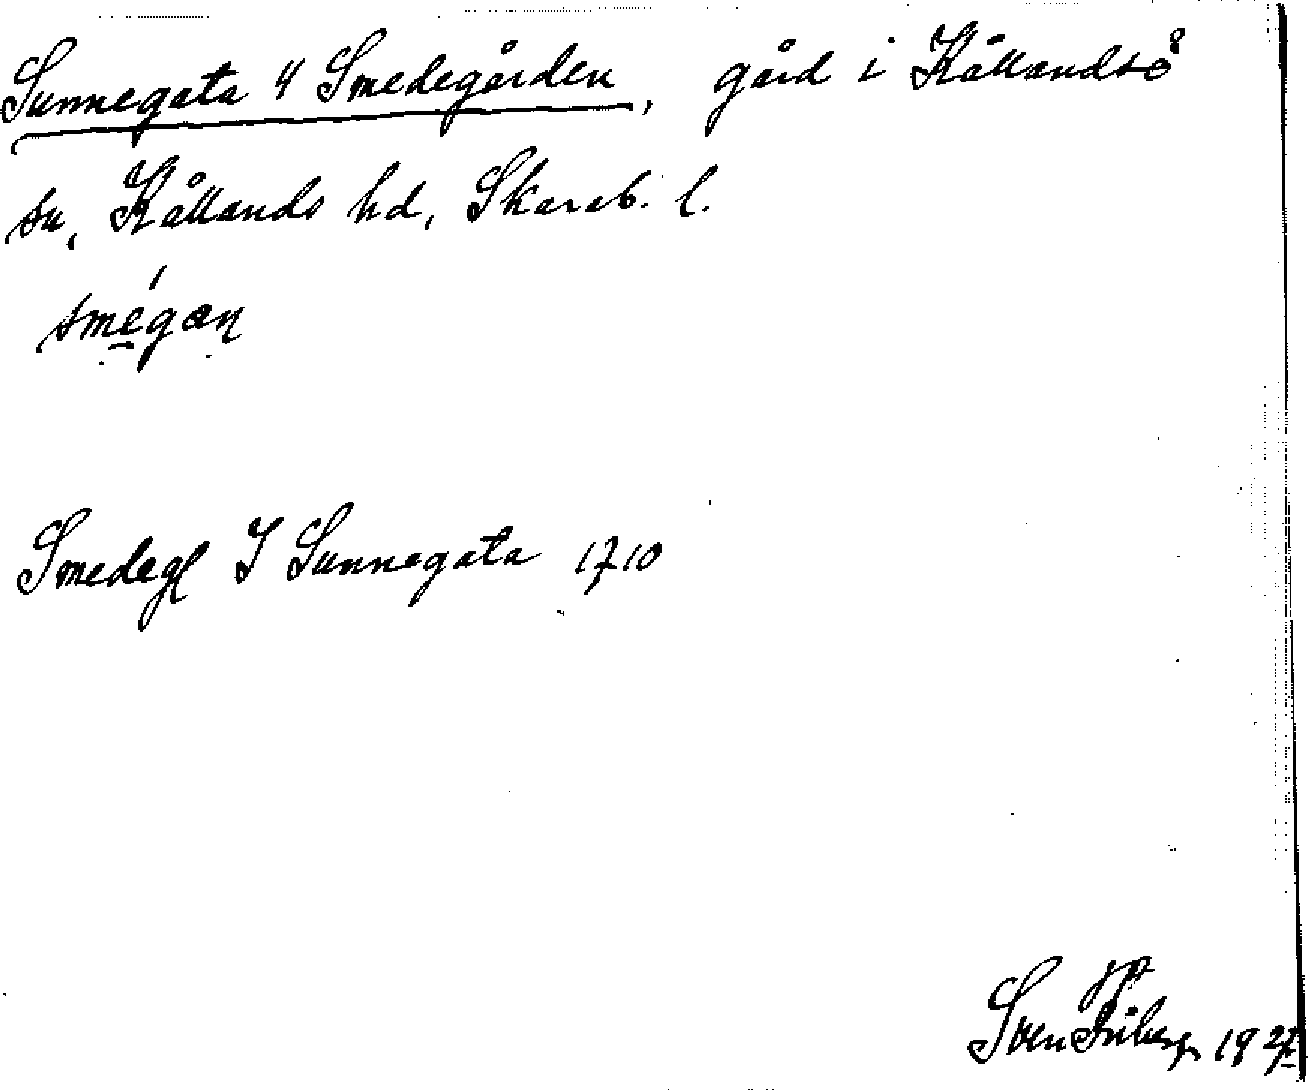 Sunnegata 4 Smedegården, gård i Kållandsö
sn, Kållands hd, Skarab. l.
smégæn
Smedeg I Sunnegata 1710
Sven Friberg 1927